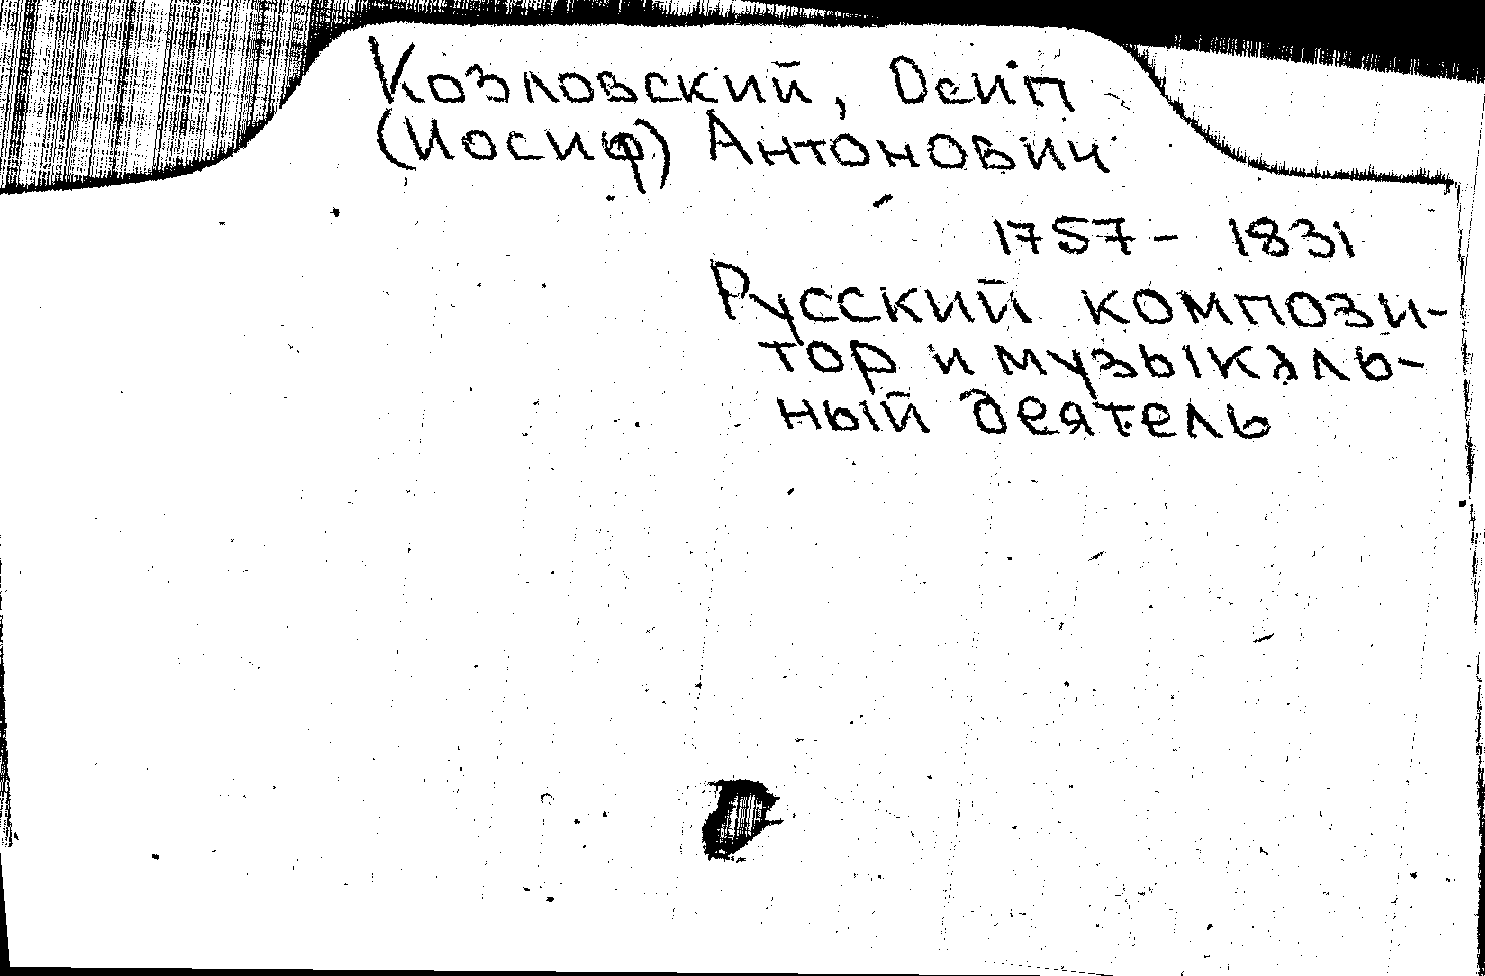 Козловский, Осип
(Иосиф) Антонович
1757 - 1831
Русский компози-
тор и музыкаль-
ный деятель